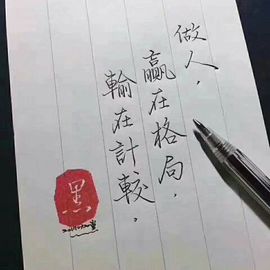 做人，
赢在格局，
輸在計較，
黑